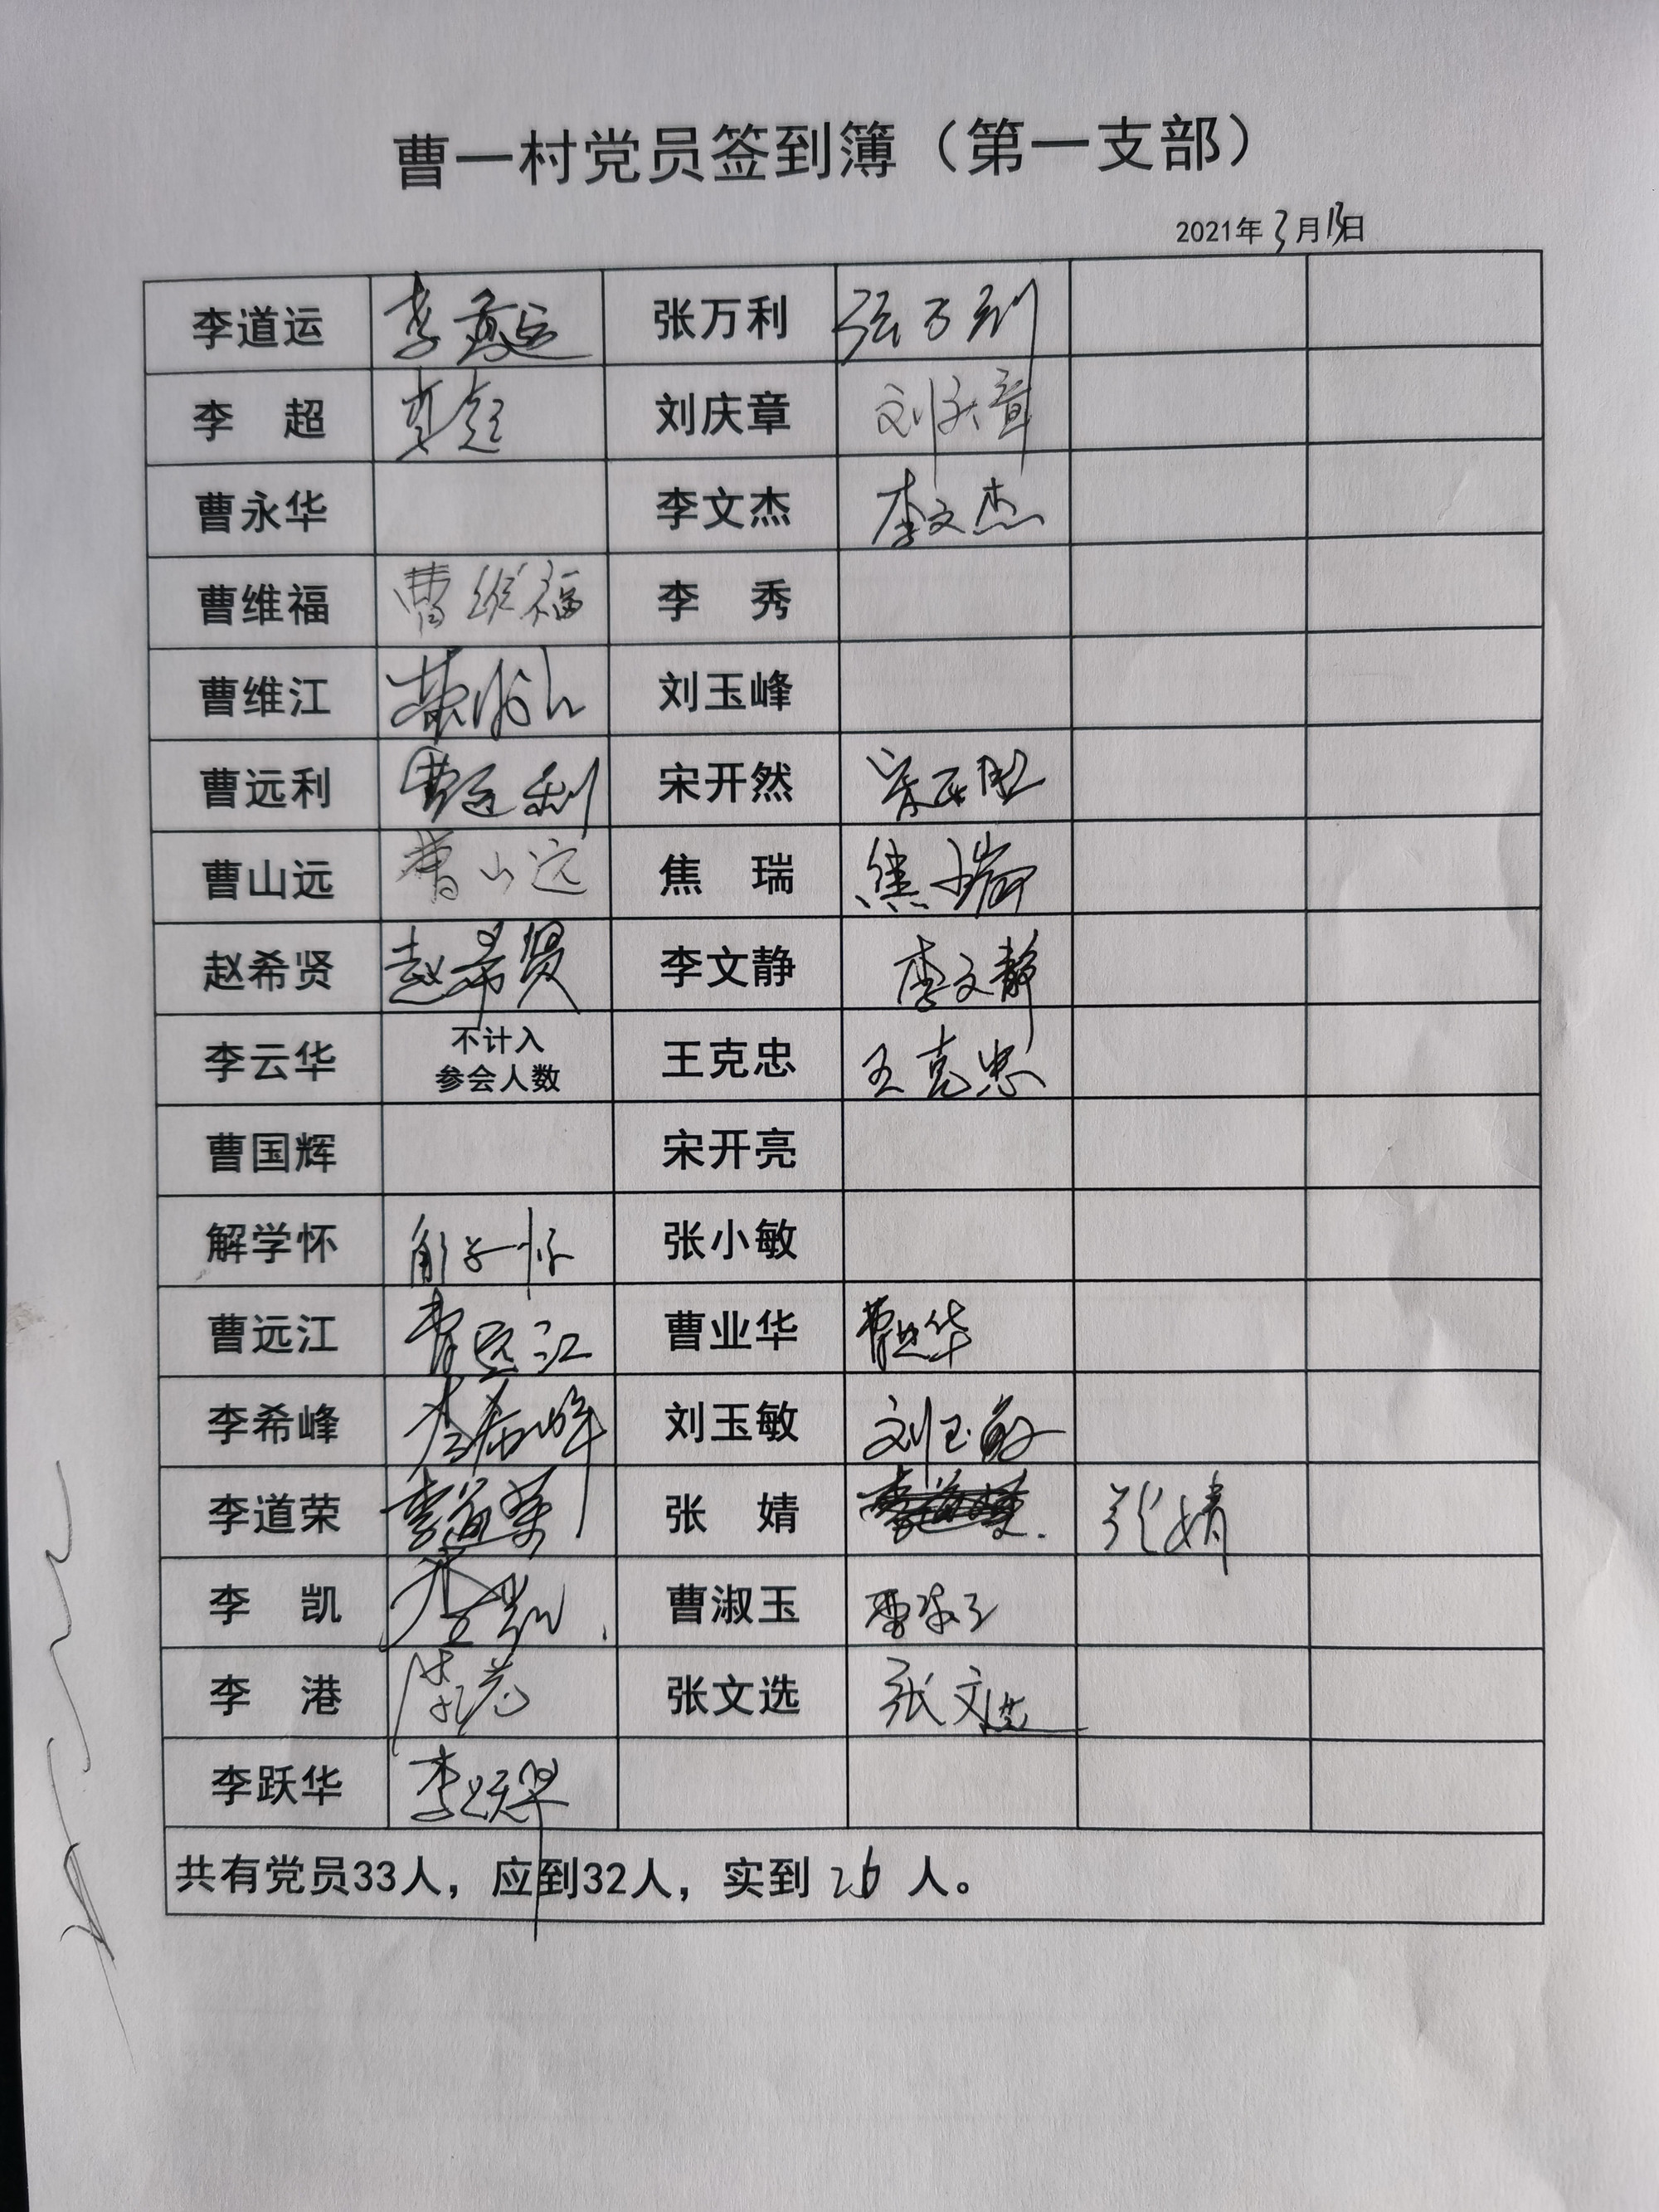 曹一村党员签到簿（第一支部）
2021年3月13日
李道运 李道运 张万利 张万利
李 超 李超 刘庆章 刘庆章
曹永华 李文杰 李文杰
曹维福 曹维福 李 秀
曹维江 曹维江 刘玉峰
曹远利 曹远利 宋开然 宋开然
曹山远 曹山远 焦 瑞 焦瑞
赵希贤 赵希贤 李文静 李文静
李云华 不计入 王克忠 王克忠
参会人数
曹国辉 宋开亮
解学怀 解学怀 张小敏
曹远江 曹远江 曹业华 曹业华
李希峰 李希峰 刘玉敏 刘玉敏
李道荣 李道荣 张 婧 张婧
李 凯 李凯 曹淑玉 曹淑玉
李 港 李港 张文选 张文选
李跃华 李跃华
共有党员33人，应到32人，实到 26 人。